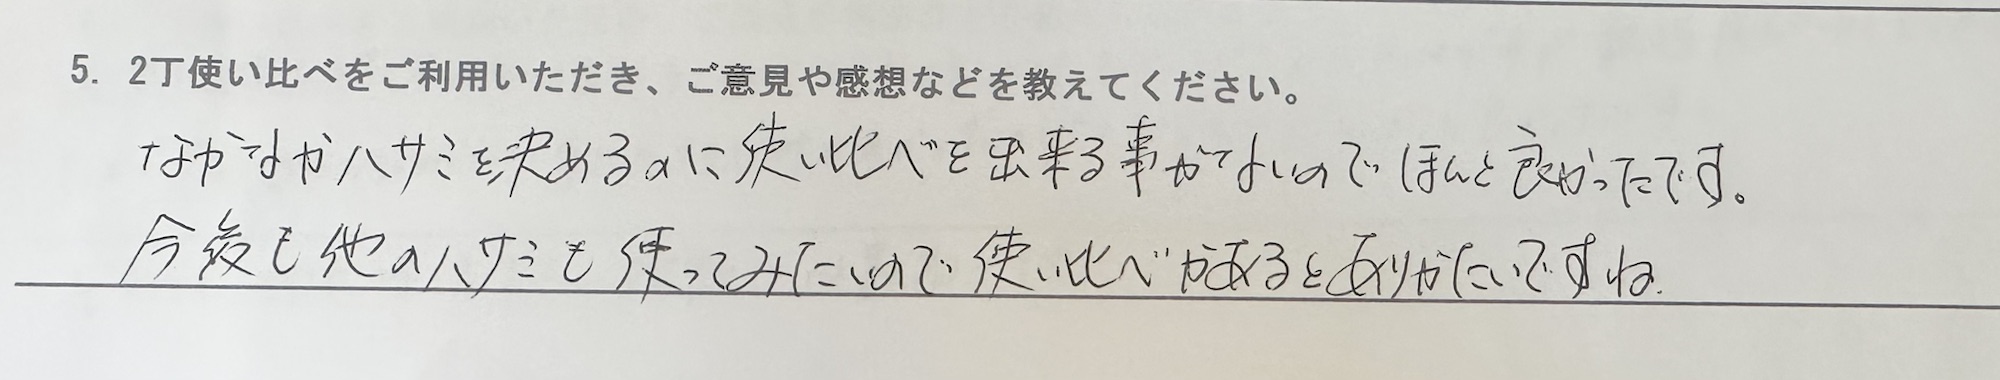 5. 2丁使い比べをご利用いただき、ご意見や感想などを教えてください。
なかなかハサミを決めるのに使い比べを出来る事がないのでほんと良かったです。
今後も他のハサミも使ってみたいので使い比べがあるとありがたいですね.